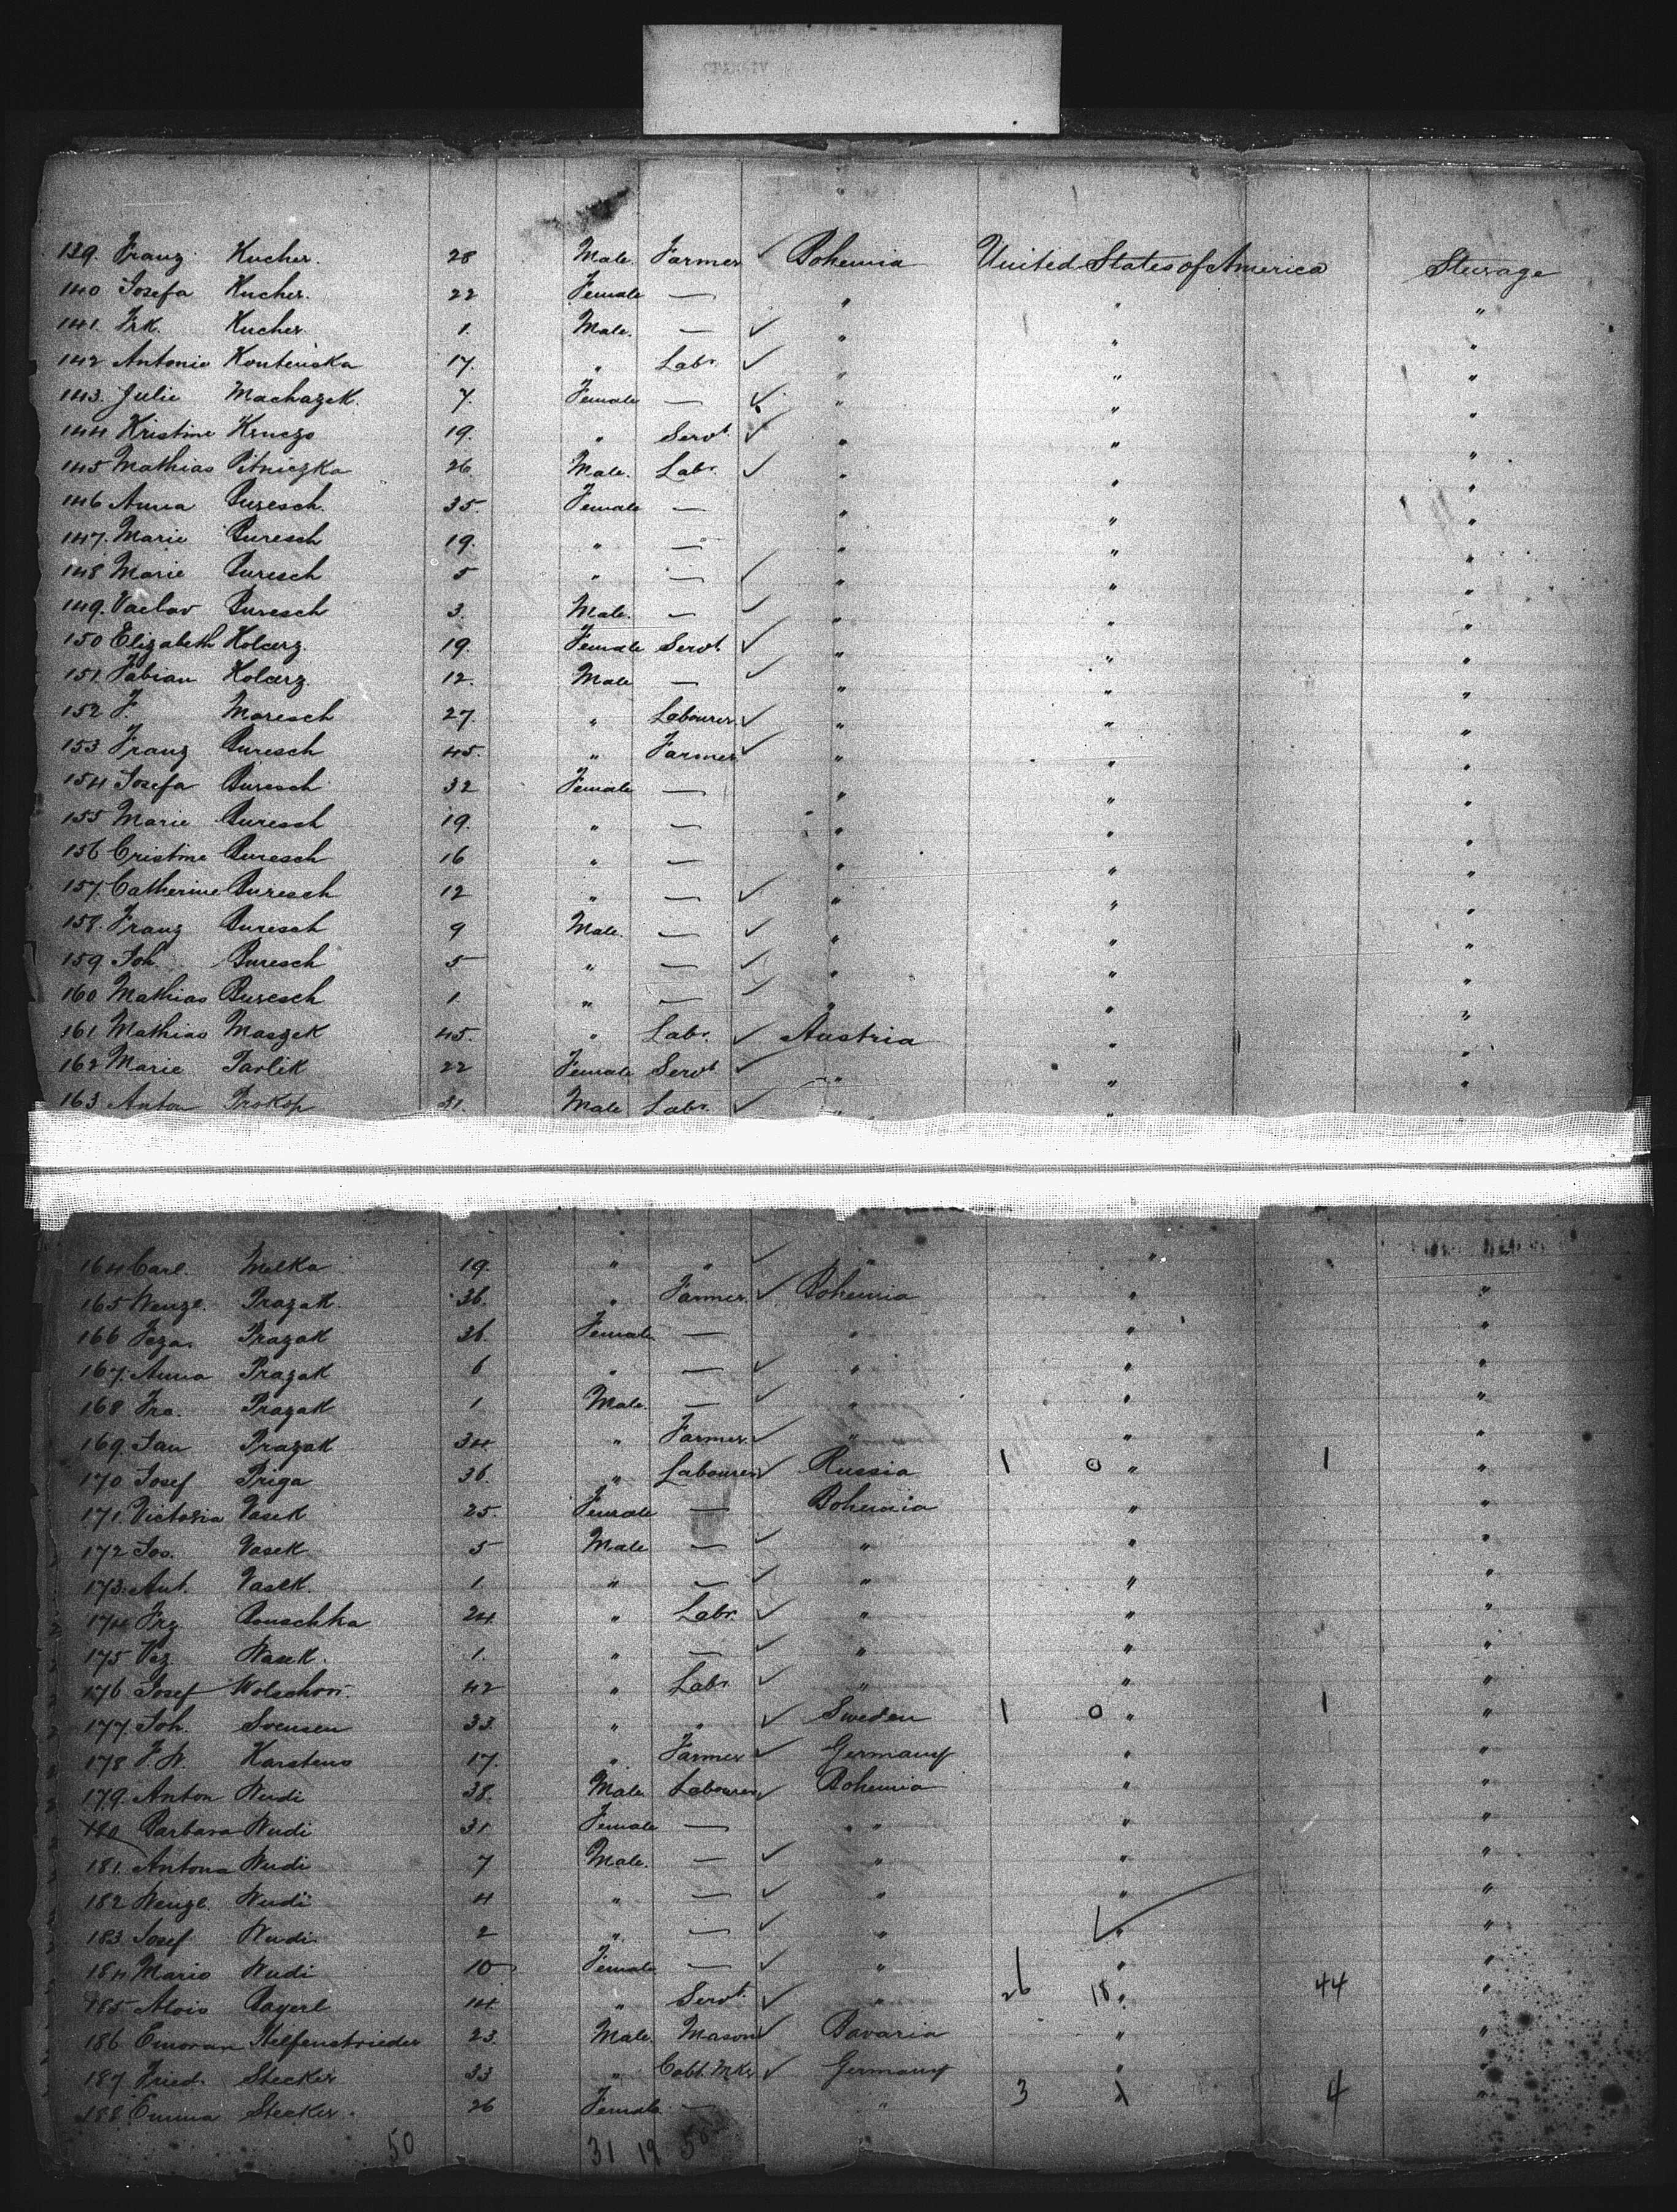 139. Franz Kucher. 28 Male. Farmer ✓ Bohemia United States of America Steerage
140 Josefa Kucher. 22 Female — " " "
141. Frk. Kucher. 1. Male. — ✓ " " "
142 Antonie Kontenska 17. " Labr. ✓ " " "
143. Julie Machazek. 7. Female — ✓ " " "
144 Kristine Kruczo 19. " Servt. ✓ " " "
145 Mathias Pitniczka 26. Male. Labr. ✓ " " "
146 Anna Buresch. 35. Female — " " "
147. Marie Buresch 19. " — " " "
148 Marie Buresch 5 " — ✓ " " "
149. Vaclav Buresch 3. Male. — ✓ " " "
150 Elizabeth Kolarz. 19. Female Servt. ✓ " " "
151. Fabian Kolarz. 12. Male — ✓ " " "
152 F. Maresch 27. " Labourer ✓ " " "
153 Franz Buresch 45. " Farmer ✓ " " "
154 Josefa Buresch 32 Female — " " "
155 Marie Buresch 19. " — " " "
156 Cristine Buresch 16 " — " " "
157. Catherine Buresch 12 " — ✓ " " "
158. Franz Buresch 9 Male. — ✓ " " "
159. Joh. Buresch 5 " — ✓ " " "
160. Mathias Buresch 1. " — ✓ " " "
161 Mathias Maszek 45. " Labr. ✓ Austria " "
162 Marie Pavlik 22 Female Servt ✓ " " "
163 Anton Prokop 31. Male Labr. ✓ " "
164 Carl. Melka 19. " " ✓ " "
165 Wenzl. Prazak. 36. " Farmer. ✓ Bohemia " "
166 Prazak 36. Female — " " "
167. Anna Prazak 6 " — ✓ " " "
168 Fra. Prazak 1 Male. — ✓ " " "
169. Jan Prazak 34. " Farmer. ✓ " " "
170 Josef Priga 36. " Labourer ✓ Russia 1 0 " 1 "
171. Victoria Vasek 25. Female — Bohemia " "
172 Jos. Vasek 5 Male — ✓ " " "
173. Ant. Vasek. 1. " — ✓ " " "
174 Frz. Bouschka 24. " Labr. ✓ " " "
175 Wasek. 1. " — ✓ " " "
176 Josef Wolschon. 42 " Labr. ✓ " " "
177. Joh. Svensen 33. " " ✓ Sweden 1 0 " 1 "
178 F. W. Karstens 17. " Farmer ✓ Germany " "
179. Anton Wudi 38. Male Labourer ✓ Bohemia " "
180 Barbara Wudi 31 Female — " " "
181. Antona Wudi 7 Male. — ✓ " " "
182 Wenzl. Wudi 4 " — ✓ " " "
183. Josef Wudi 2 " — ✓ " " "
184 Marie Wudi 10 Female — ✓ " " "
185 Alois Bayerl 14. " Servt. ✓ " 26 18 " 44 "
186 Emoran Helfenstrieder 23. Male. Mason ✓ Bavaria " "
187 Fried. Stecker 33 " Cabt. Mkr ✓ Germany " "
188 Emma Stecker. 26 Female. — " 3 1 4 "
50 31 19 50